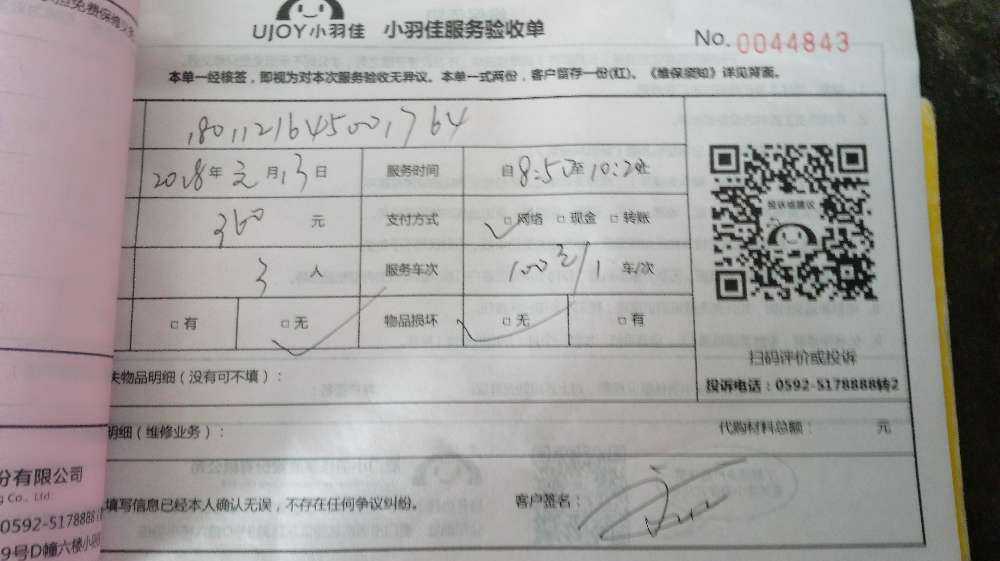 UJOY小羽佳 小羽佳服务验收单
No. 0044843
本单一经核签，即视为对本次服务验收无异议。本单一式两份，客户留存一份(红)。《维保须知》详见背面。
1801121645001764
2018年元月13日 服务时间 自8:50至10:20止
360 元 支付方式 □网络 □现金 □转账
3 人 服务车次 100元/1 车/次
□有 □无 物品损坏 □无 □有
投诉或建议
扫码评价或投诉
投诉电话：0592-5178888转2
失物品明细（没有可不填）：
明细（维修业务）： 代购材料总额： 元
填写信息已经本人确认无误，不存在任何争议纠纷。 客户签名：
免费保修
份有限公司
g Co., Ltd.
0592-5178888
9号D幢六楼小